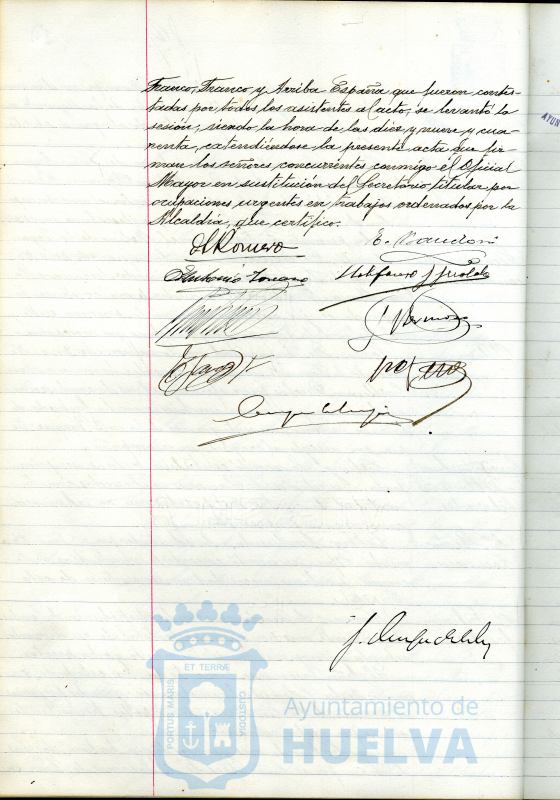 Franco, Franco, y Arriba España que fueron contes-
tadas por todos los asistentes al acto, se levantó la
sesión, siendo la hora de las diez y nueve y cua-
renta, extendiéndose la presente acta que fir-
man los señores concurrentes conmigo el Oficial
Mayor en sustitución del Secretario titular por
ocupaciones urgentes en trabajos ordenados por la
Alcaldía, que certifico.
Romero
Antonio
AYUN
ET TERRÆ
PORTUS MARIS
CUSTODIA
Ayuntamiento de
HUELVA